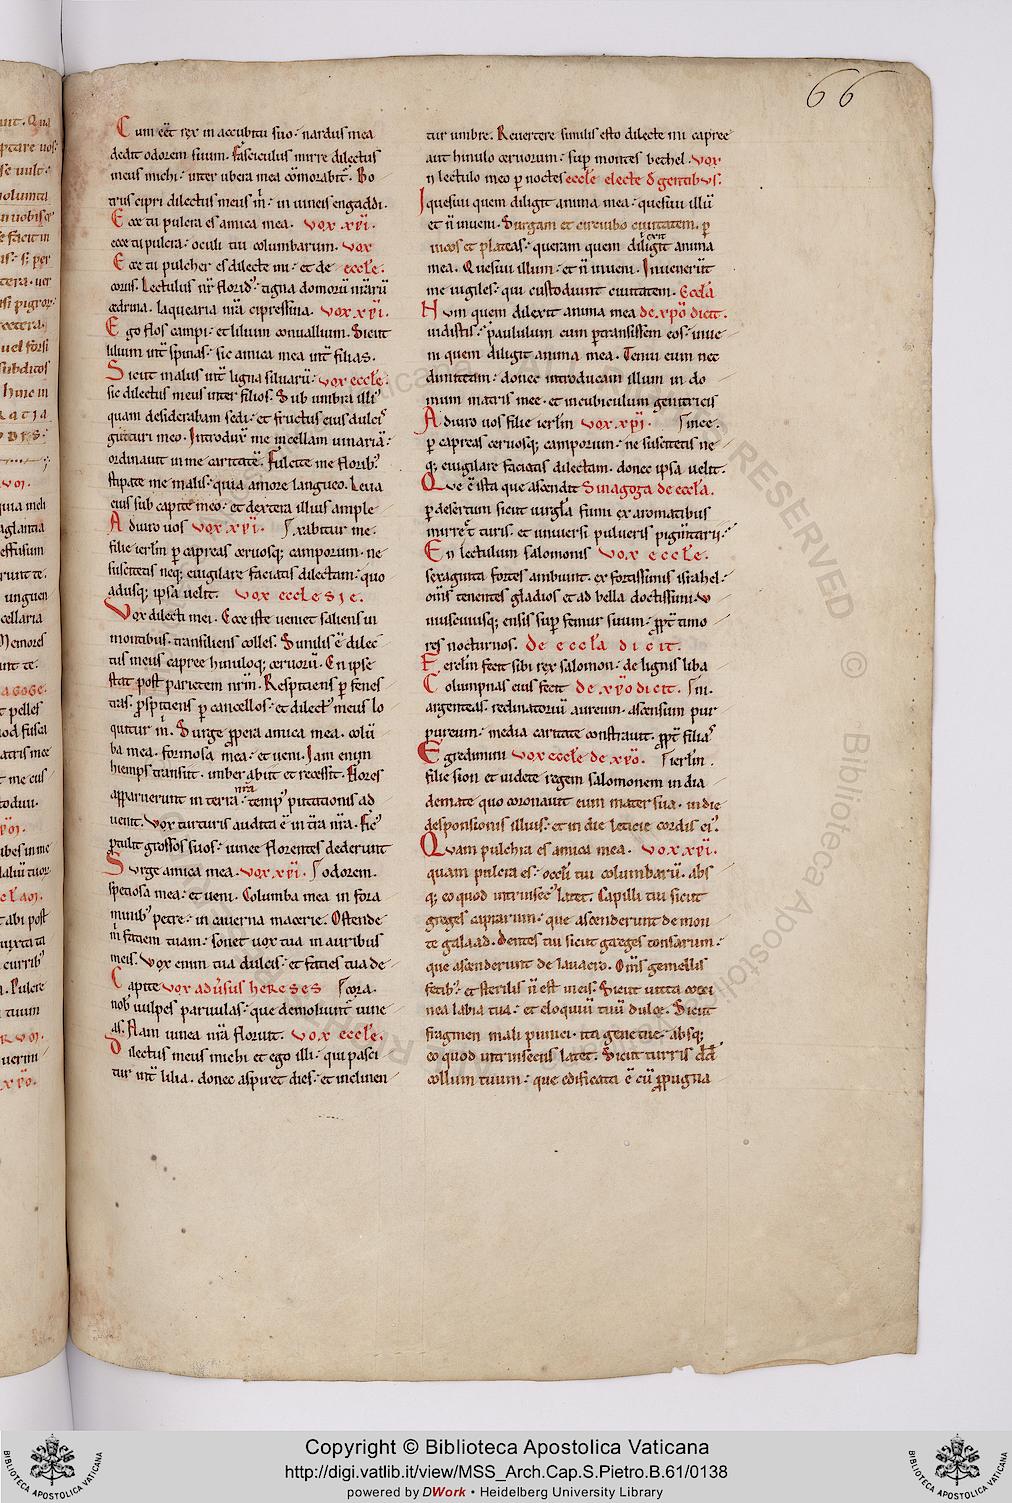 66
Cum eēt rex in accubitu suo· nardus mea
dedit odorem suum· fasciculus mirre dilectus
meus michi· inter ubera mea cōmorabit̄· Bo
trus cipri dilectus meus m̄· in uineis engaddi·
Ecce tu pulcra es amica mea· vox ·xp̄i·
ecce tu pulcra· oculi tui columbarum· vox
Ecce tu pulcher es dilecte mi· et de eccl̄e·
corus· Lectulus nr̄ florid᾿· tigna domorū nr̄arū
cedrina· laquearia nr̄a cipressina· vox xp̄i·
Ego flos campi· et lilium conuallium· Sicut
lilium int̄ spinas· sic amica mea int̄ filias·
Sicut malus int̄ ligna siluarū· vox eccl̄e·
sic dilectus meus inter filios· Sub umbra illi᾿
quam desiderabam sedi· et fructus eius dulci᾿
gutturi meo· Introdux̄ me in cellam uinariā·
ordinauit in me caritatē· fulcite me florib᾿
stipate me malis· quia amore langueo· Leua
eius sub capite meo· et dextera illius ample
Adiuro uos vox xp̄i· xabitur me·
filie ierl̄m p capreas ceruosq; camporum· ne
suscitetis neq; euigilare faciatis dilectam· quo
adusq; ipsa uelit· vox ecclesie·
Vox dilecti mei· Ecce iste uenit saliens in
montibus· transiliens colles· Similis ē dilec
tus meus capree hinuloq; ceruorū· En ipse
stat post parietem nr̄m· Respiciens p fenes
tras· p̄spiciens p cancellos· et dilect᾿ meus lo
quitur m̄· Surge p̄pera amica mea· colū
ba mea· formosa mea· et ueni· Iam enim
hiemps transiit· imber abiit et recessit· flores
apparuerunt in terra nr̄a· temp᾿ putationis ad
uenit· Vox turturis audita ē in t̄ra nr̄a· fic᾿
p̄tulit grossos suos· uinee florentes dederunt
Surge amica mea· vox xp̄i· odorem·
speciosa mea· et ueni· Columba mea in fora
minib᾿ petre· in cauerna macerie· Ostende
m̄ faciem tuam· sonet uox tua in auribus
meis· Vox enim tua dulcis· et facies tua de
Capite vox adūsus hereses cora·
nob᾿ uulpes paruulas· que demoliunt̄ uine
as· Nam uinea nr̄a floruit· vox eccl̄e·
Dilectus meus michi et ego illi· qui pasci
tur int̄ lilia· donec aspiret dies· et inclinen
tur umbre· Reuertere similis esto dilecte mi capree
aut hinulo ceruorum· sup̄ montes bethel· vox
n lectulo meo p noctes eccl̄e electe d̄ gentibus·
Iquesiui quem diligit anima mea· quesiui illū
et n̄ inueni· Surgam et circuibo ciuitatem· p
uicos et plateas· queram quem diligit anima
mea· Quesiui illum· et n̄ inueni· Inuenerūt
me uigiles· qui custodiunt ciuitatem· Eccl̄a
Num quem dilexit anima mea de xp̄o dicit·
uidistis· paululum cum p̄transissem eos· inue
ni quem diligit anima mea· Tenui eum nec
dimittam· donec introducam illum in do
mum matris mee· et in cubiculum genitricis
Adiuro uos filie ierl̄m vox xp̄i· mee·
p capreas ceruosq; camporum· ne suscitetis ne
q; euigilare faciatis dilectam· donec ipsa uelit·
Que ē ista que ascendit Sinagoga de eccl̄a·
p desertum sicut uirgl̄a fumi ex aromatibus
mirre t̄ turis· et uniuersi pulueris pigm̄tarii·
En lectulum salomonis vox eccl̄e·
sexaginta fortes ambiunt· ex fortissimis israhel·
om̄s tenentes gladios et ad bella doctissimi· v
niuscuiusq; ensis sup̄ femur suum· p̄pt̄ timo
res nocturnos· de eccl̄a dicit·
Fercl̄m fecit sibi rex salomon· de lignis liba
Columpnas eius fecit de xp̄o dicit· ni·
argenteas· reclinatoriū aureum· ascensum pur
pureum· media caritate constrauit· p̄pt̄ filia᾿
Egredimini vox eccl̄e de xp̄o· ierl̄m·
filie sion et uidete regem salomonem in dia
demate quo coronauit eum mater sua· in die
desponsionis illius· et in die leticie cordis ei᾿·
Quam pulchra es amica mea· vox xp̄i·
quam pulcra es· occl̄i tui columbarū· abs
q; eo quod intrinsec᾿ latet· Capilli tui sicut
greges caprarum· que ascenderunt de mon
te galaad· dentes tui sicut greges tonsarum·
que ascenderunt de lauacro· Om̄s gemellis
fetib᾿· et sterilis n̄ est in eis· Sicut uitta cocci
nea labia tua· et eloquiū tuū dulce· Sicut
fragmen mali punici· ita gene tue· absq;
eo quod intrinsecus latet· Sicut turris dd̄
collum tuum· que edificata ē cū p̄pugna
Copyright © Biblioteca Apostolica Vaticana
http://digi.vatlib.it/view/MSS_Arch.Cap.S.Pietro.B.61/0138
powered by DWork • Heidelberg University Library